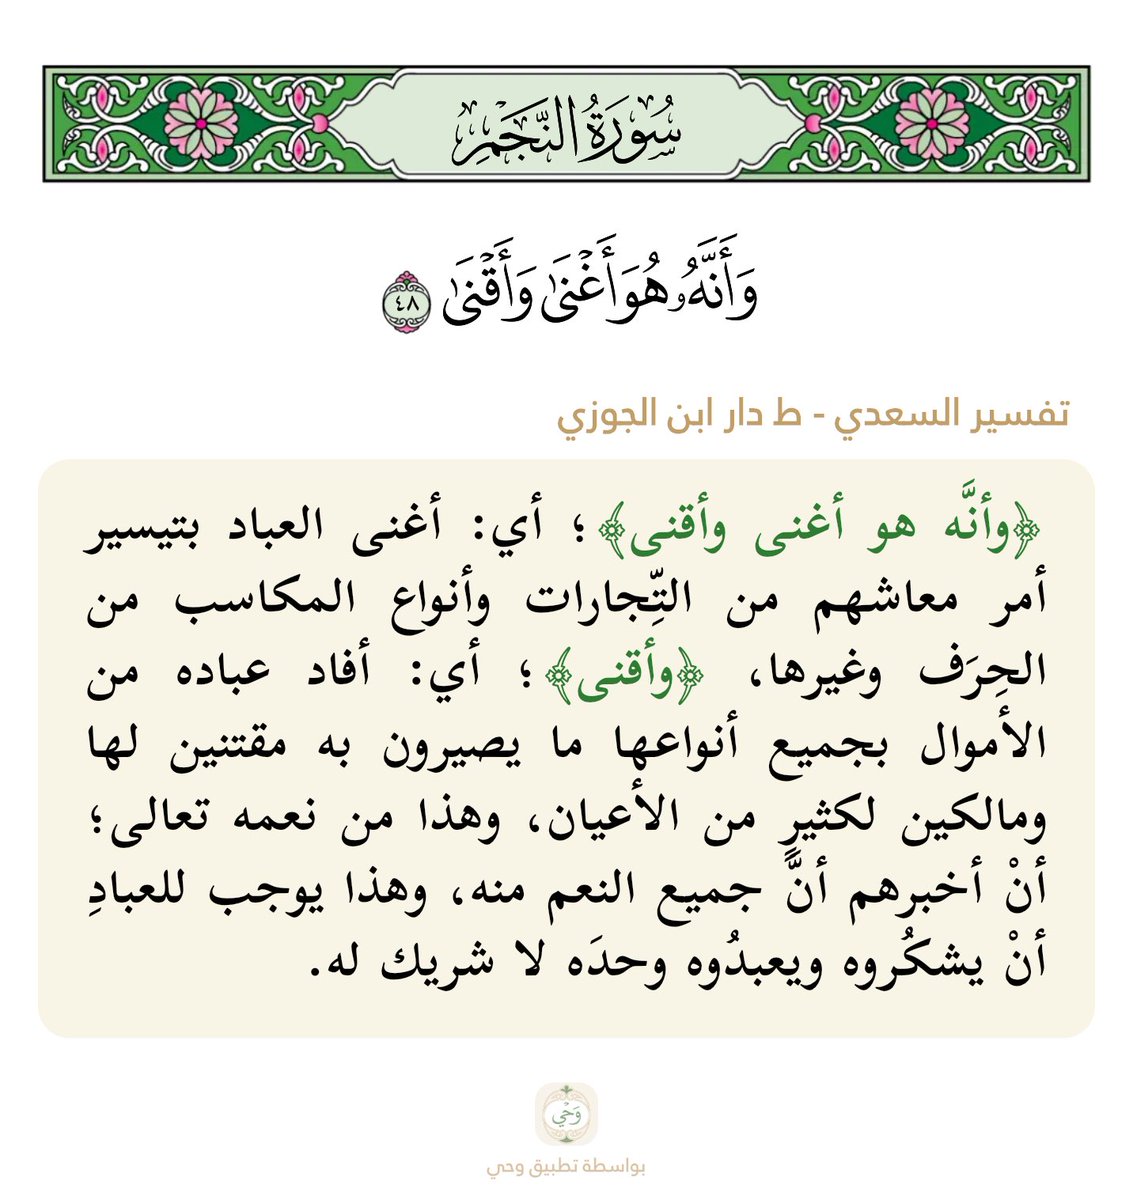 سُورَةُ النَّجْمِ
وَأَنَّهُۥ هُوَ أَغْنَىٰ وَأَقْنَىٰ ٤٨
تفسير السعدي - ط دار ابن الجوزي
﴿وأنَّه هو أغنى وأقنى﴾؛ أي: أغنى العباد بتيسير
أمر معاشهم من التِّجارات وأنواع المكاسب من
الحِرَف وغيرها، ﴿وأقنى﴾؛ أي: أفاد عباده من
الأموال بجميع أنواعها ما يصيرون به مقتنين لها
ومالكين لكثيرٍ من الأعيان، وهذا من نعمه تعالى؛
أنْ أخبرهم أنَّ جميع النعم منه، وهذا يوجب للعبادِ
أنْ يشكُروه ويعبدُوه وحدَه لا شريك له.
وَحْي
بواسطة تطبيق وحي